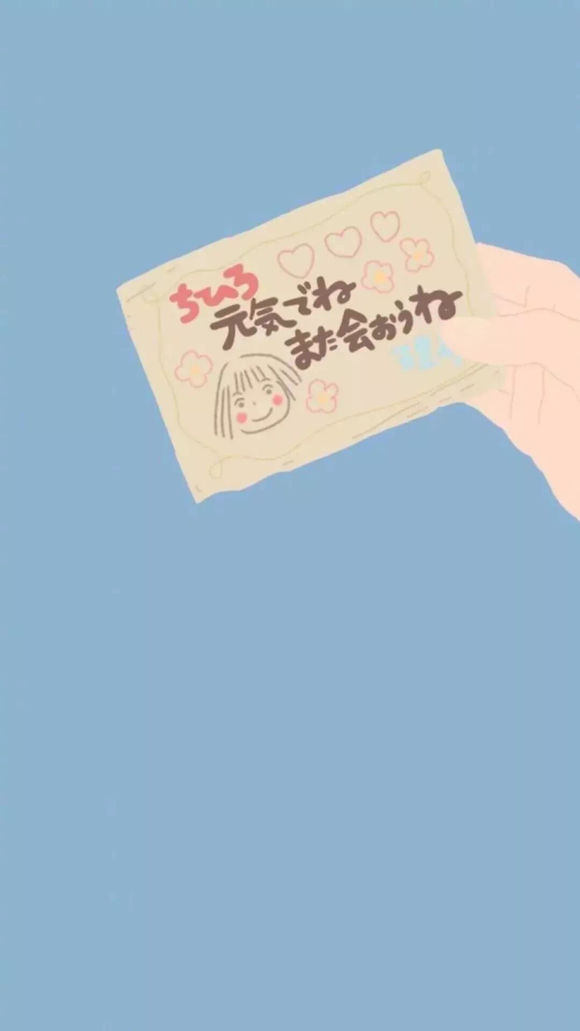 ちひろ
元気でね
また会おうね